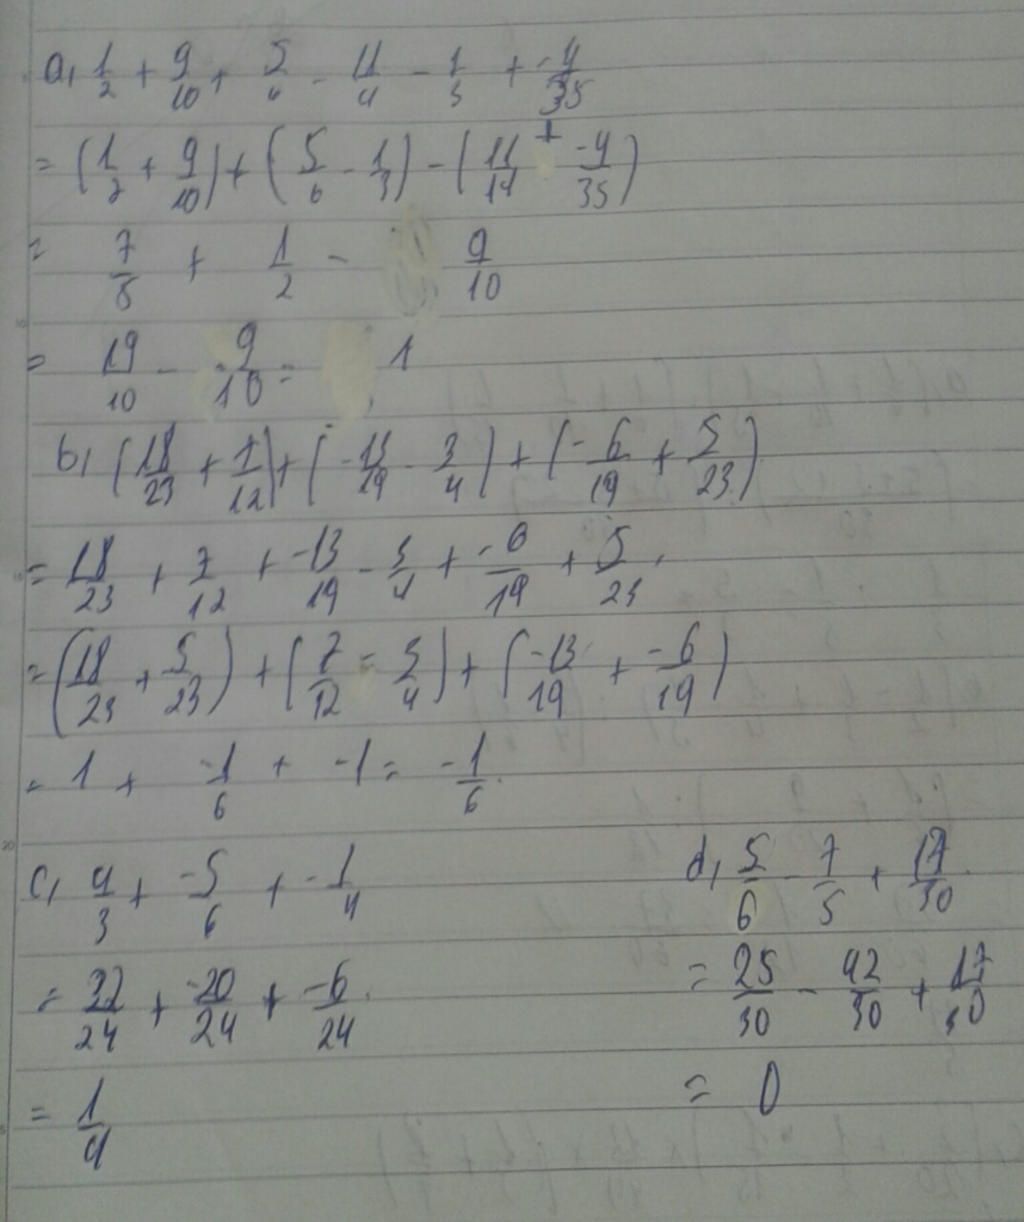 a, 1/2 + 9/10 + 5/6 - 11/4 - 1/3 + -4/35
= (1/2 + 9/10) + (5/6 - 1/3) - (11/14 + -4/35)
= 7/5 + 1/2 - 9/10
= 19/10 - 9/10 = 1
b, (18/23 + 7/12) + (-13/19 - 3/4) + (-6/19 + 5/23)
= 18/23 + 7/12 + -13/19 - 3/4 + -6/19 + 5/23
= (18/23 + 5/23) + (7/12 - 3/4) + (-13/19 + -6/19)
= 1 + -1/6 + -1 = -1/6
c, 4/3 + -5/6 + -1/4
= 32/24 + -20/24 + -6/24
= 1/4
d, 5/6 - 7/5 + 17/30
= 25/30 - 42/30 + 17/30
= 0